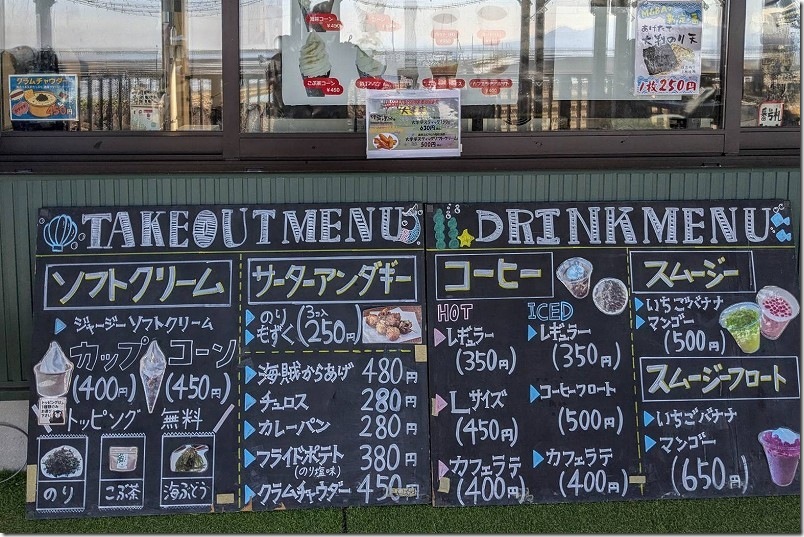 ¥450
¥400
あげたて
大判のり天
1枚250円
クラムチャウダー
450円
630円
500円
TAKEOUT MENU
ソフトクリーム
ジャージーソフトクリーム
カップ コーン
(400円) (450円)
トッピング 無料
のり こぶ茶 海ぶどう
サーターアンダギー
のり
もずく (3コ入 250円)
海賊からあげ 480円
チュロス 280円
カレーパン 280円
フライドポテト 380円
(のり塩味)
クラムチャウダー 450円
DRINK MENU
コーヒー
HOT
レギュラー
(350円)
Lサイズ
(450円)
カフェラテ
(400円)
ICED
レギュラー
(350円)
コーヒーフロート
(500円)
カフェラテ
(400円)
スムージー
いちごバナナ
マンゴー
(500円)
スムージーフロート
いちごバナナ
マンゴー
(650円)